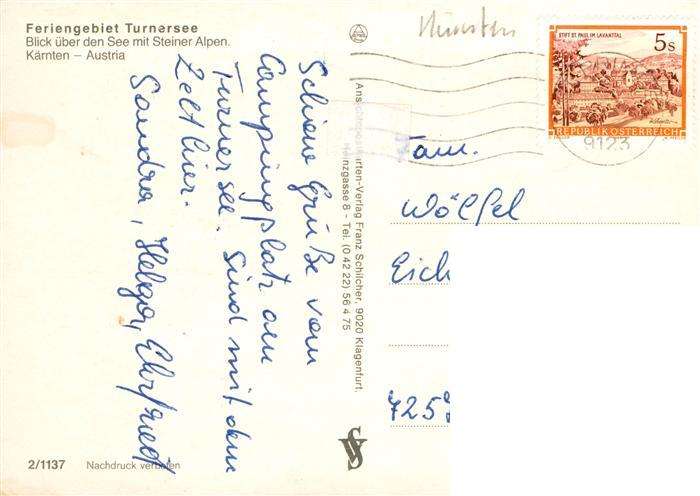 Feriengebiet Turnersee
Blick über den See mit Steiner Alpen.
Kärnten – Austria
Schöne Grüße vom
Campingplatz am
Turnersee. Sind mit dem
Zelt hier.
Sandra, Helga, Ehrfried
2/1137 Nachdruck verboten
Franz Schilcher, 9020 Klagenfurt,
gasse 8 - Tel. (0 42 22) 56 4 75
Münster
STIFT ST. PAUL IM LAVANTTAL
5 S
REPUBLIK ÖSTERREICH
9123
Fam.
Wölfel
Eich
725